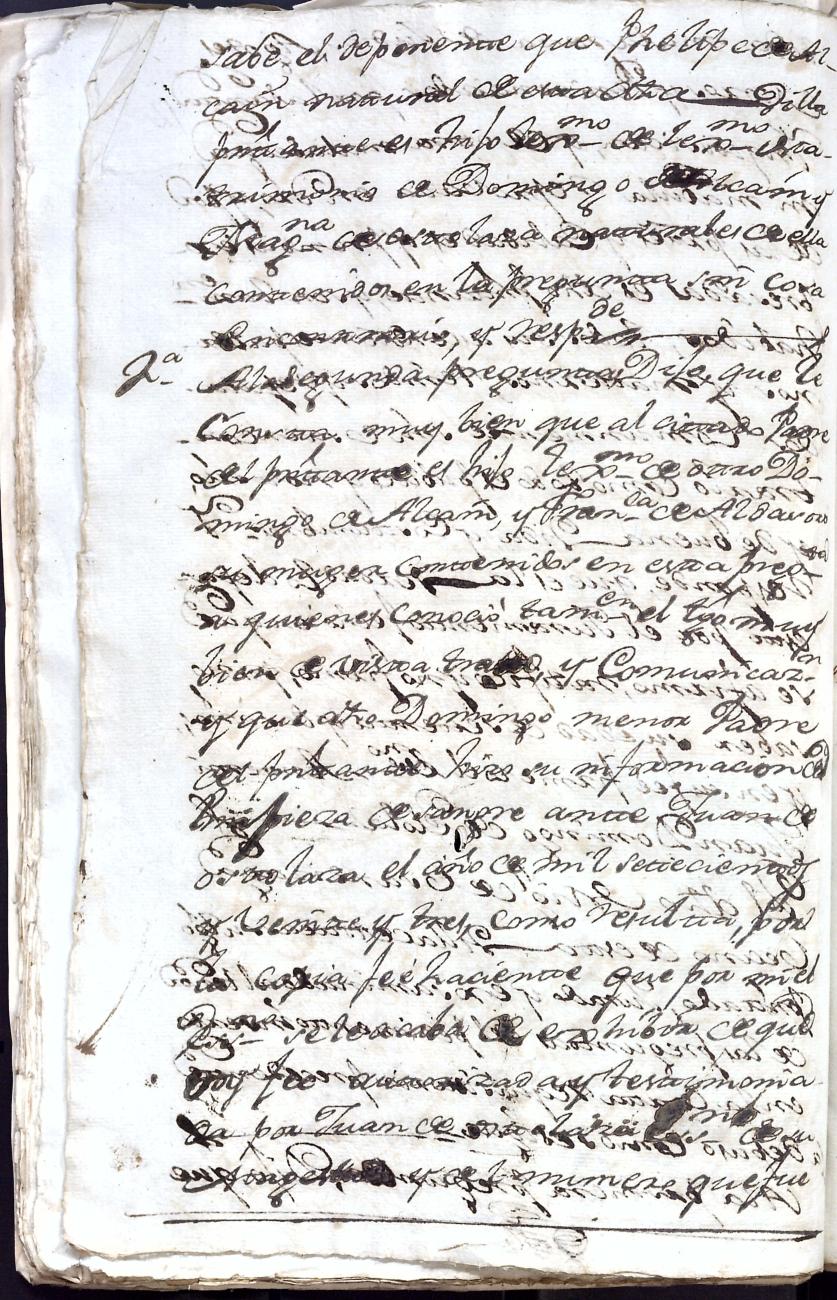 sabe el deponente que Phelipe de Al-
cain natural de esta dha Villa
pntante es hijo lexmo de lexmo Ma-
trimonio de Domingo de Alcain y
Magna de ostolaza naturales de ella
contenidos en la pregunta, sin cosa
en contrario, y respde
2a A la segunda pregunta Dijo, que le
Consta muy bien que al citado Padre
del pntante es hijo lexmo de otro Do-
mingo de Alcain, y Franda de Aldavor
su muger contenidos en esta preg-
a quienes conoció tamen el tgo muy
bien de vista trato y Comunicazn
y que dho Domingo menor Padre
del pntante hizo su informacion de
limpieza de sangre ante Juan de
ostolaza el año de mil setecientos
y veinte y tres, como resulta, por
la copia feé haciente que por mi el
se le acaba de exhibir de que
doy feé autorizada y testimonia-
da por Juan de ostolaza essno de su
Magestad y del numero que fue